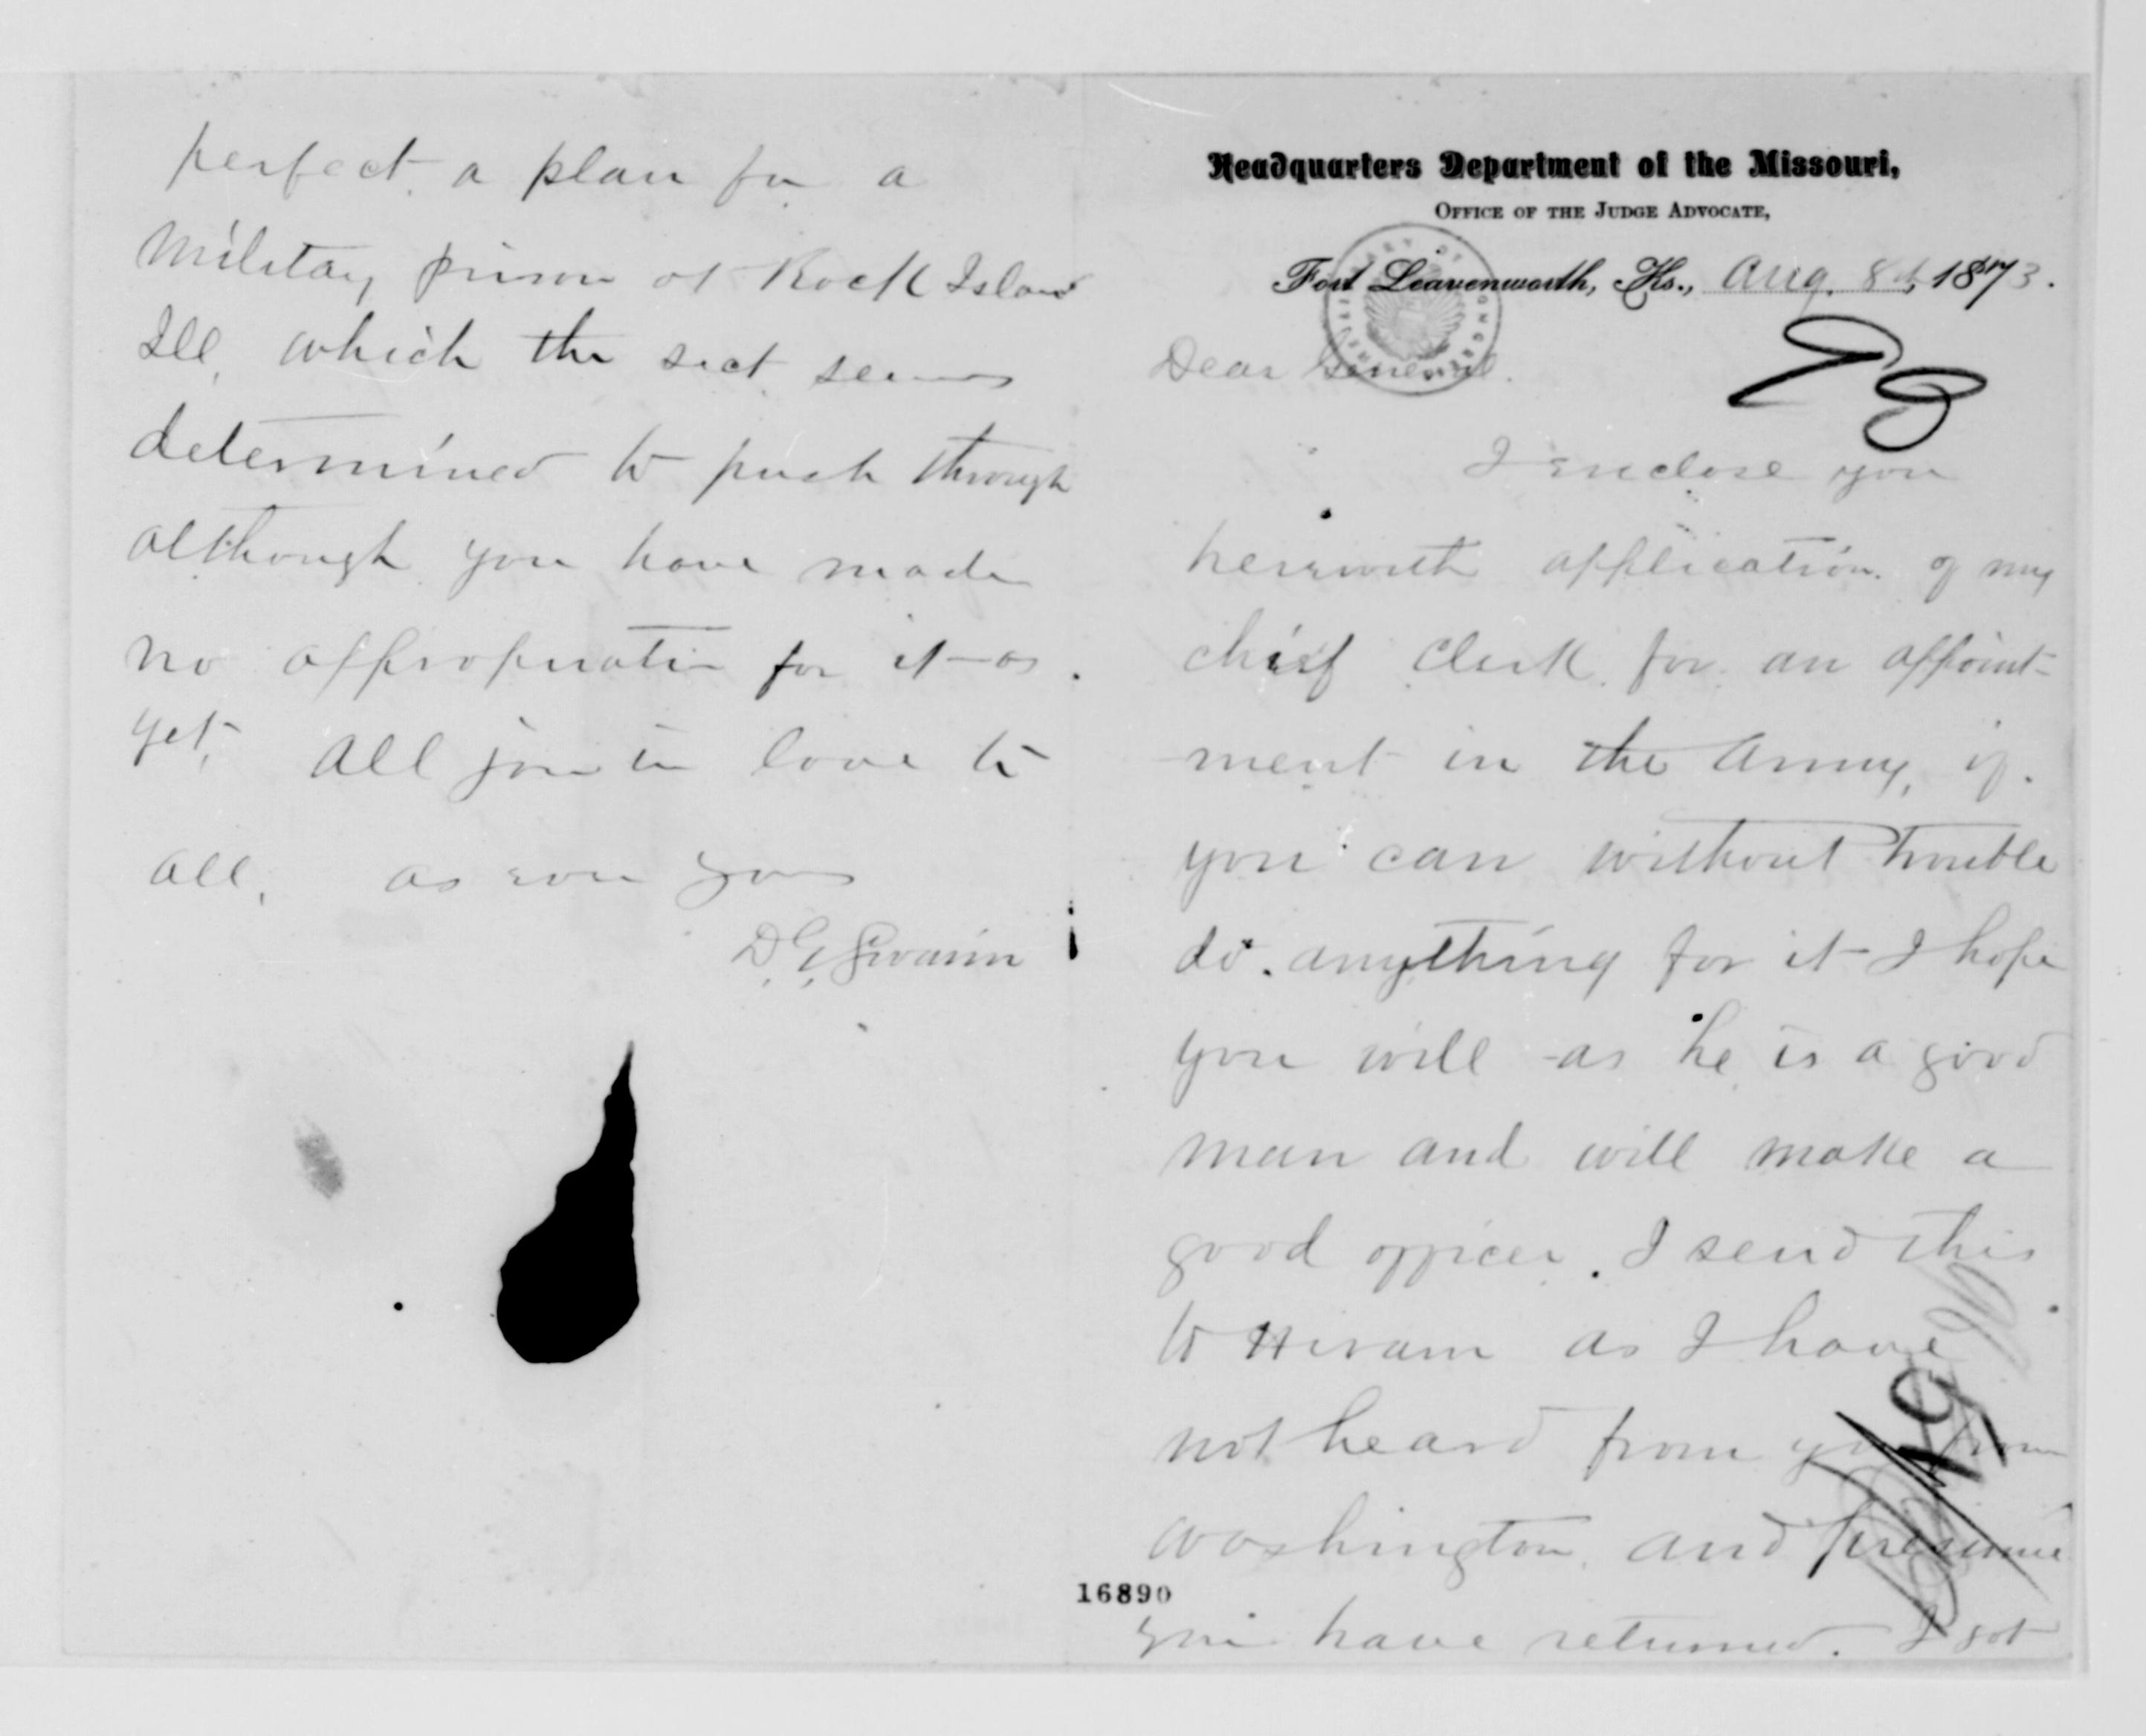 Headquarters Department of the Missouri,
OFFICE OF THE JUDGE ADVOCATE,
Fort Leavenworth, Ks., Aug. 8th, 1873.
Dear General.
I enclose you
herewith application of my
chief clerk for an appoint-
ment in the Army, if
you can without trouble
do anything for it I hope
you will as he is a good
man and will make a
good officer. I send this
to Hiram as I have
not heard from you from
Washington and presume
you have returned. I got
16890
perfect a plan for a
Military prison at Rock Island
Ill, which the sect seems
determined to push through
although you have made
no appropriation for it as
yet, All join in love to
all, as ever yours
D. G. Swaim